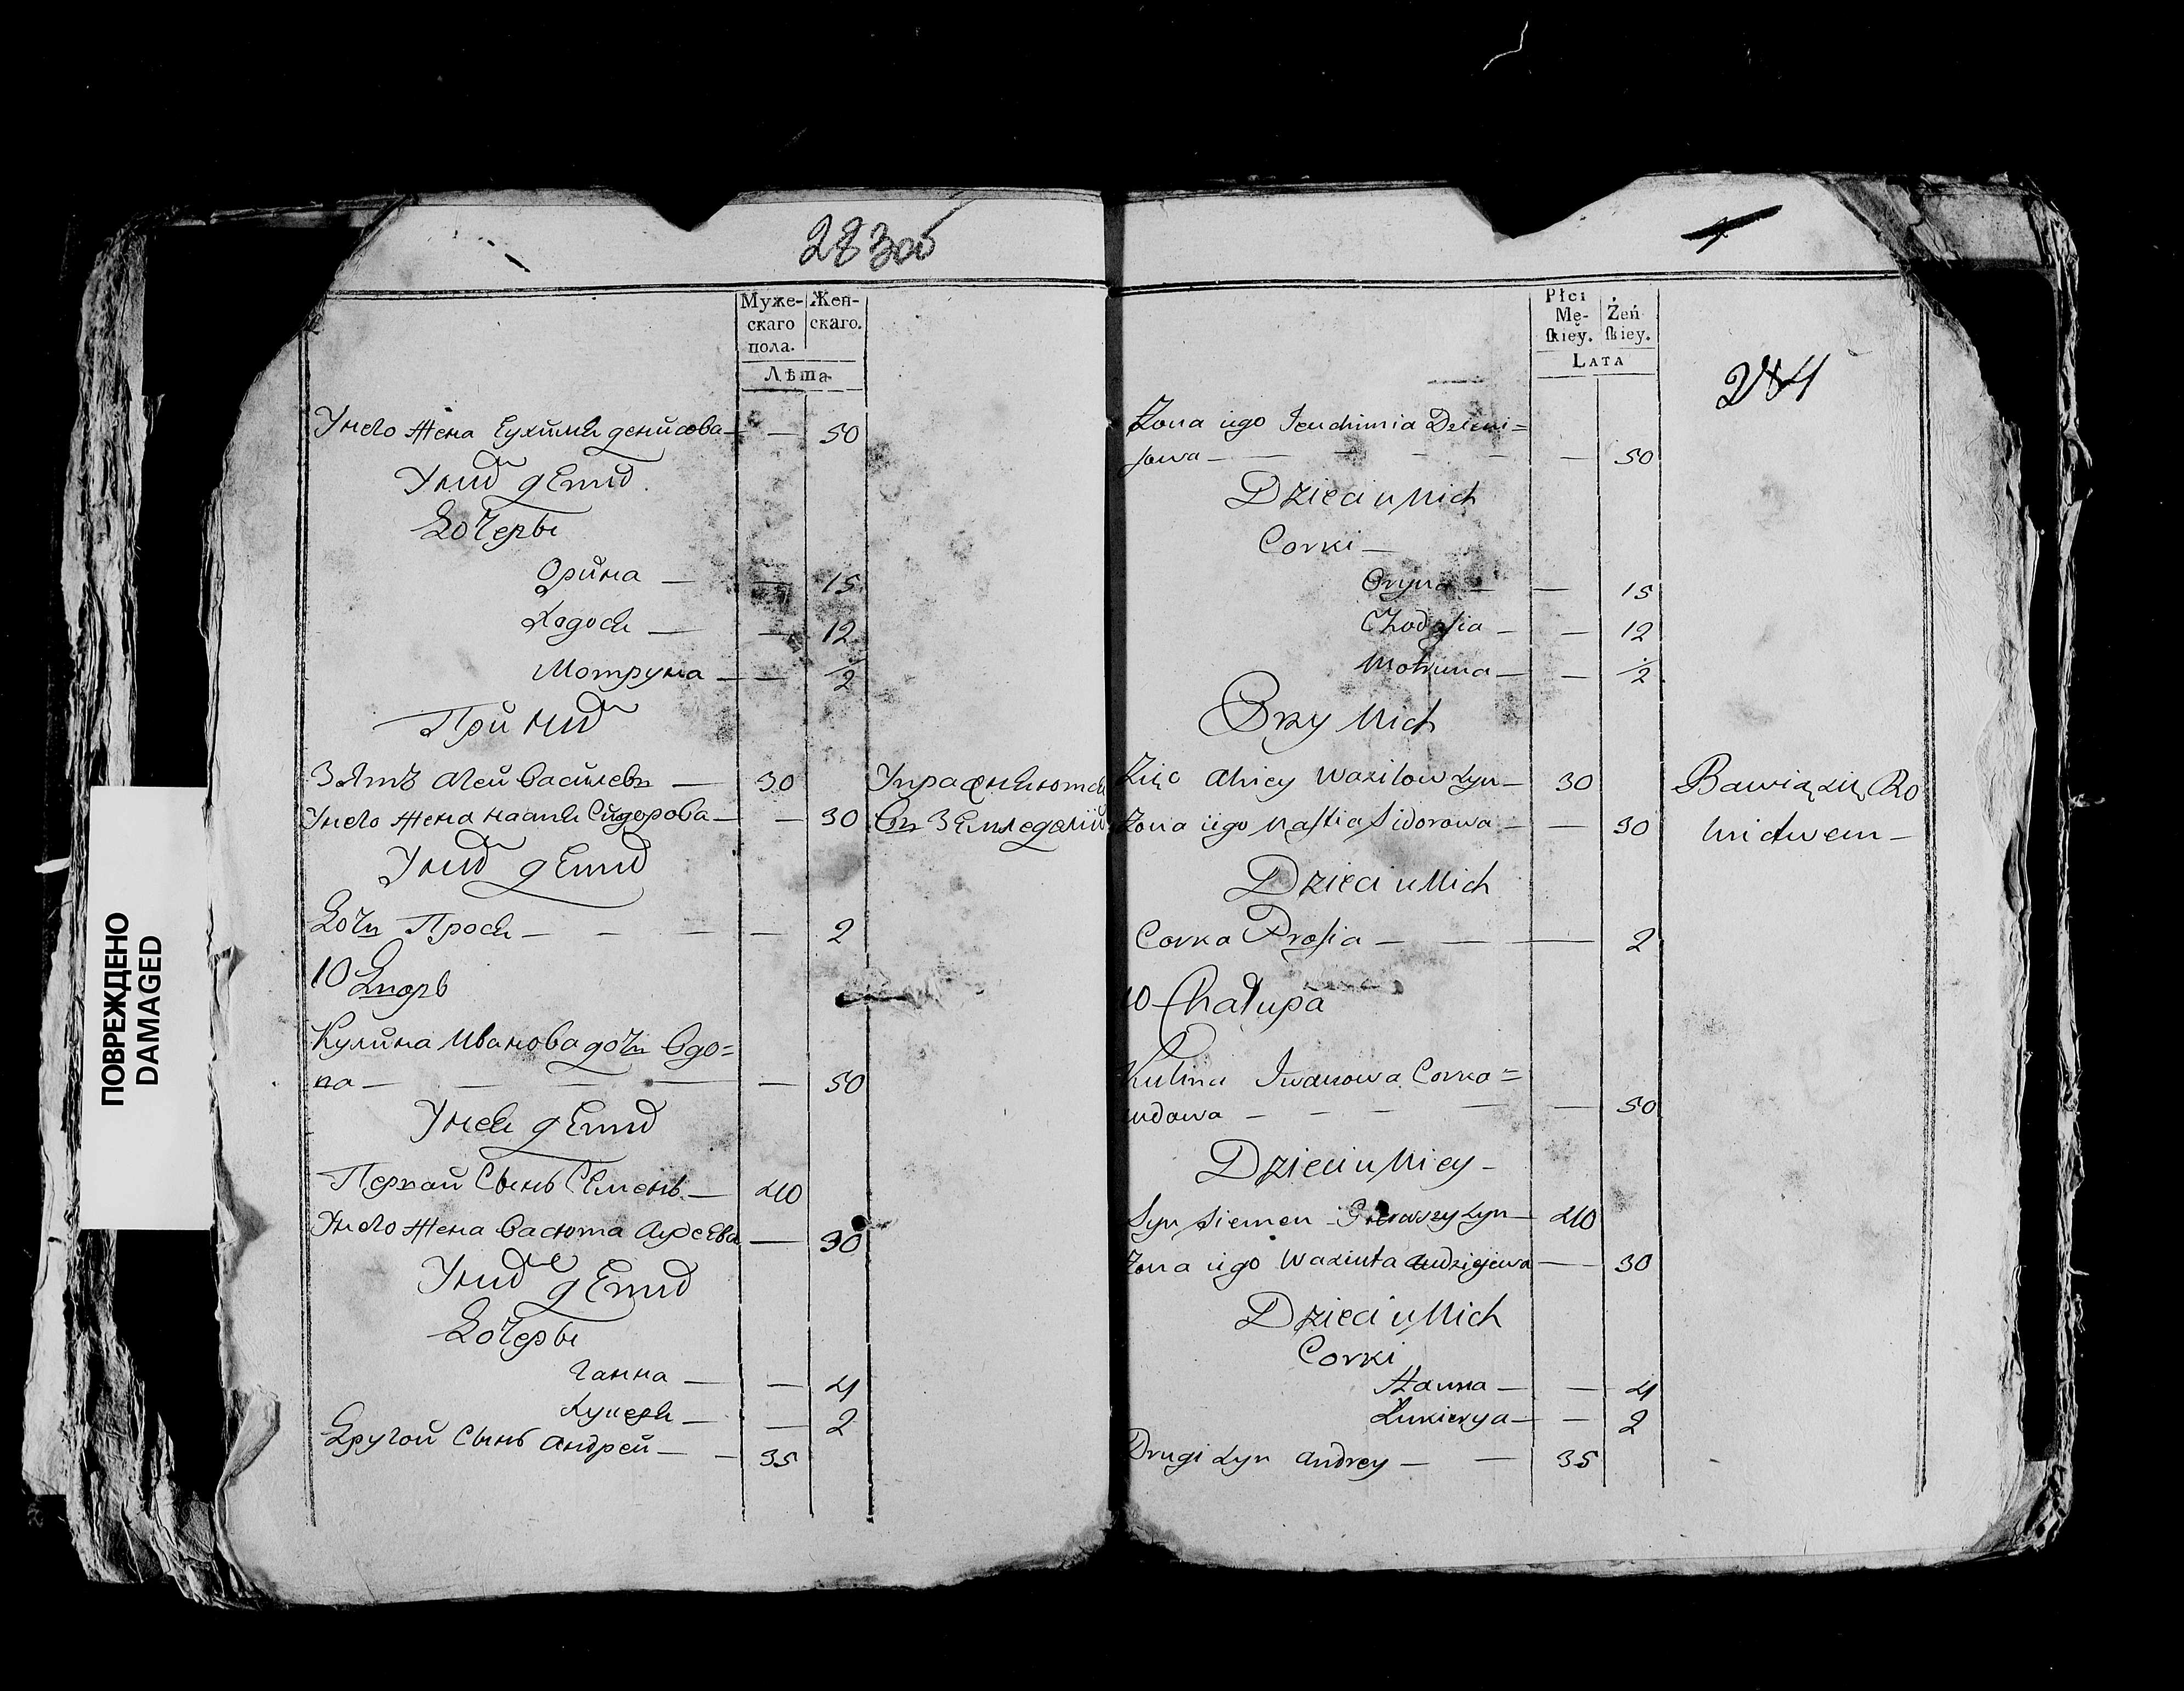 283об
Муже-
скаго
пола.
Жен-
скаго.
Лѣта
Унего жена Еухимия денисова — — 50
Уних дети
Дочеры
Орина — — 15
Ходося — — 12
Мотруна — — 1/2
При них
Зять Алей Васильевъ — 30
Унего жена настя Сидорова — — 30
Упражняются
Въ Земледелии
Уних дети
Дочь Прося — — — — 2
10 Дворъ
Кулина Иванова дочь вдо=
ва — — — — — 50
Унея дети
Первай Сынъ Семенъ — 40
Унего жена Васюта Аудеева — 30
Уних дети
Дочеры
Ганна — — 4
Лукеря — — 2
Другой Сынъ Андрей — — 35
Płci
Mę-
skiey.
Żeń
skiey.
LATA
284
Żona iego Jeuchimia Deleni=
sowa — — — — — — 50
Dzieci u Nich
Corki —
Oryna — — 15
Chodosia — — 12
Motruna — — 1/2
Przy Nich
Zięc Aliey Wasilow syn — 30
Żona iego Nastia Sidorowa — — 30
Bawią się Ro
lnictwem —
Dzieci u Nich
Corka Prosia — — — 2
10 Chałupa
Kulina Iwanowa Corka=
wdowa — — — — — 50
Dzieci u Niey —
Syn Siemen Pierwszy syn — 40
Żona iego Wasiuta Audziejewa — — 30
Dzieci u Nich
Corki
Hanna — — 4
Łukierya — — 2
Drugi syn Andrey — — 35
ПОВРЕЖДЕНО
DAMAGED